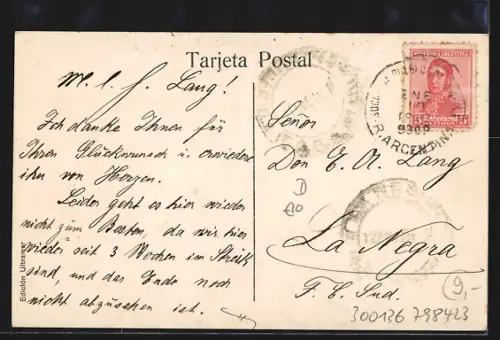 Tarjeta Postal
M. l. f. Lang!
Ich danke Ihnen für
Ihren Glückwunsch u. erwiedere
ihn von Herzen.
Leider geht es hier wieder
nicht zum Besten, da wir hier
wieder seit 3 Wochen im Streik
sind, und das Ende noch
nicht abzusehen ist.
Edición Ultramar
REPUBLICA ARGENTINA
5 5
R. ARGENTINA
Señor
Don E. A. Lang
La Negra
F. C. Sud.
9,-
300136 798423